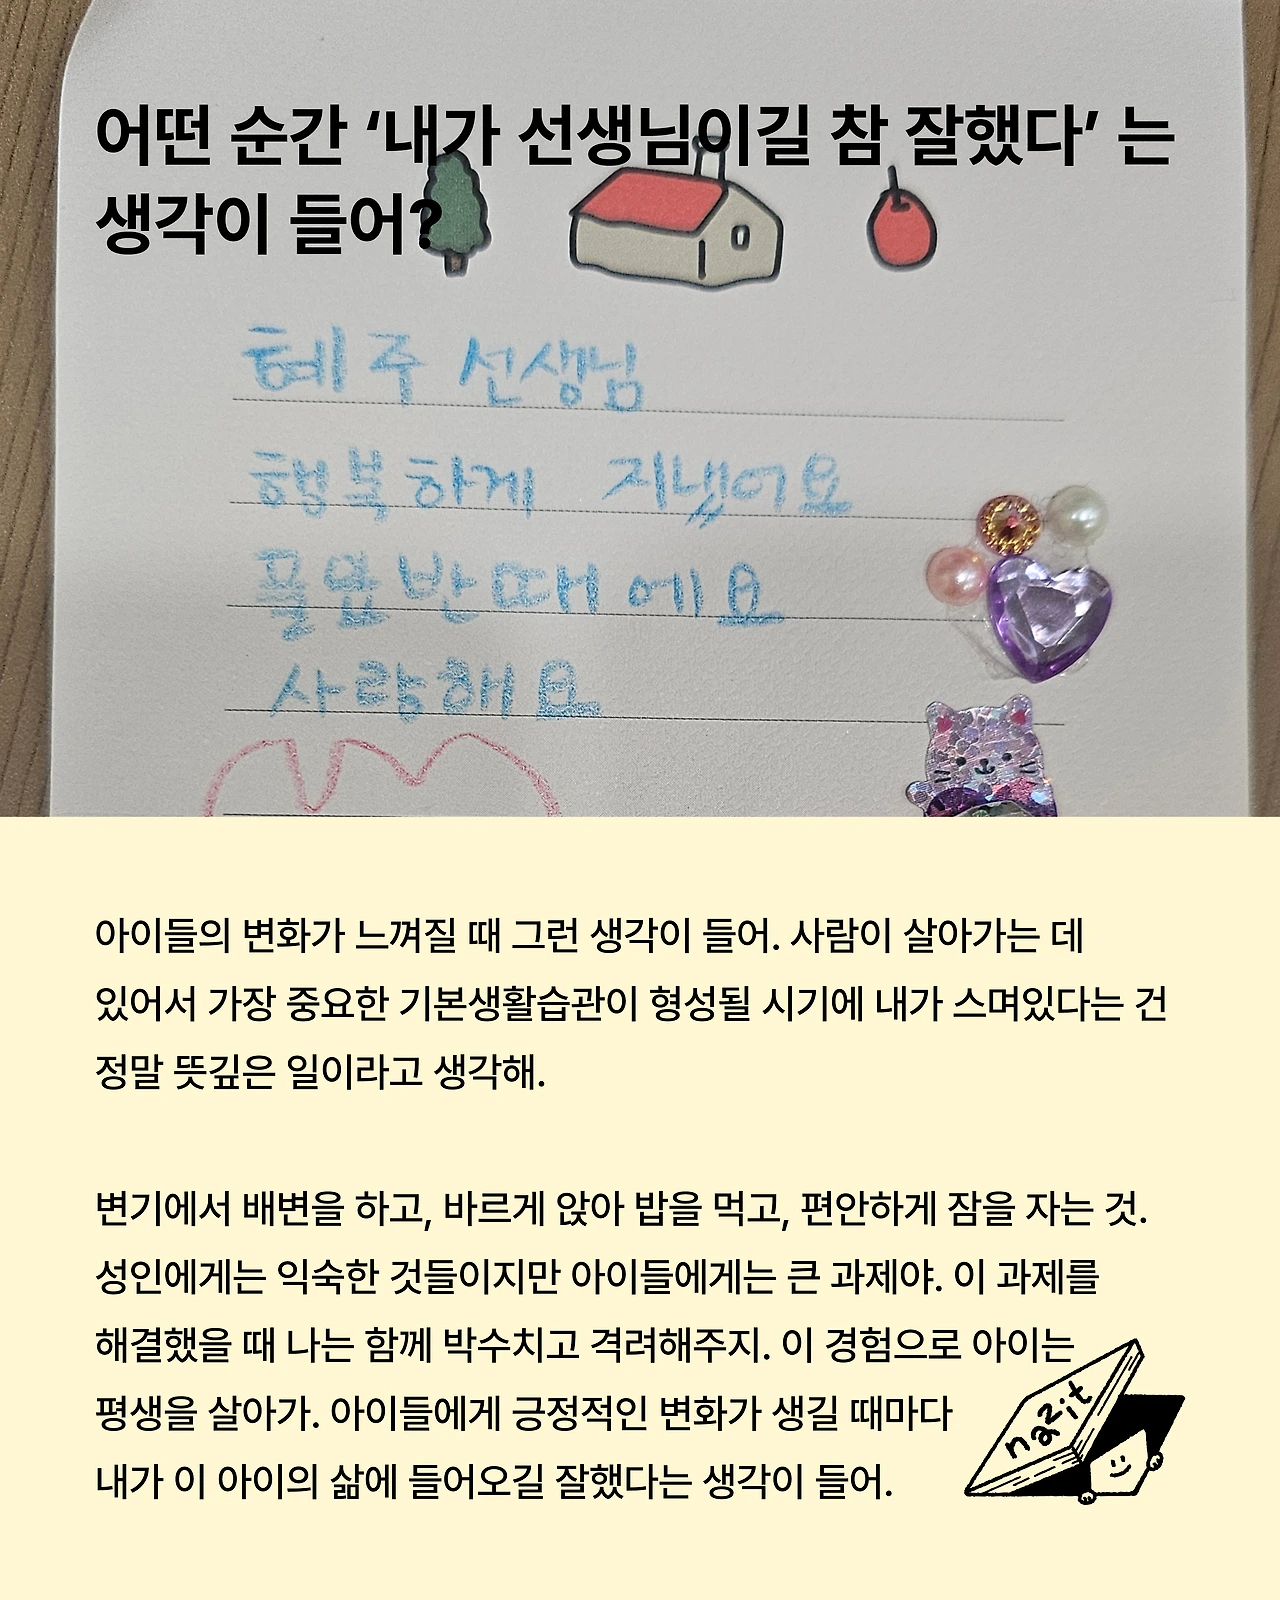 어떤 순간 ‘내가 선생님이길 참 잘했다’ 는
생각이 들어?
혜주 선생님
행복하게 지냈어요
풀잎반때에요
사랑해요
아이들의 변화가 느껴질 때 그런 생각이 들어. 사람이 살아가는 데
있어서 가장 중요한 기본생활습관이 형성될 시기에 내가 스며있다는 건
정말 뜻깊은 일이라고 생각해.
변기에서 배변을 하고, 바르게 앉아 밥을 먹고, 편안하게 잠을 자는 것.
성인에게는 익숙한 것들이지만 아이들에게는 큰 과제야. 이 과제를
해결했을 때 나는 함께 박수치고 격려해주지. 이 경험으로 아이는
평생을 살아가. 아이들에게 긍정적인 변화가 생길 때마다
내가 이 아이의 삶에 들어오길 잘했다는 생각이 들어.
nazit